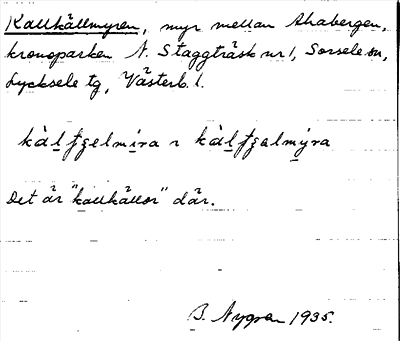 Kallkällmyren, myr mellan Ahabergen,
kronoparken N. Staggträsk nr 1, Sorsele sn,
Lycksele tg, Västerb. l.
kàlʄʒelmíra ɿ kàlʄʒalmýra
Det är "kallkällor" där.
B. Nygren 1935.